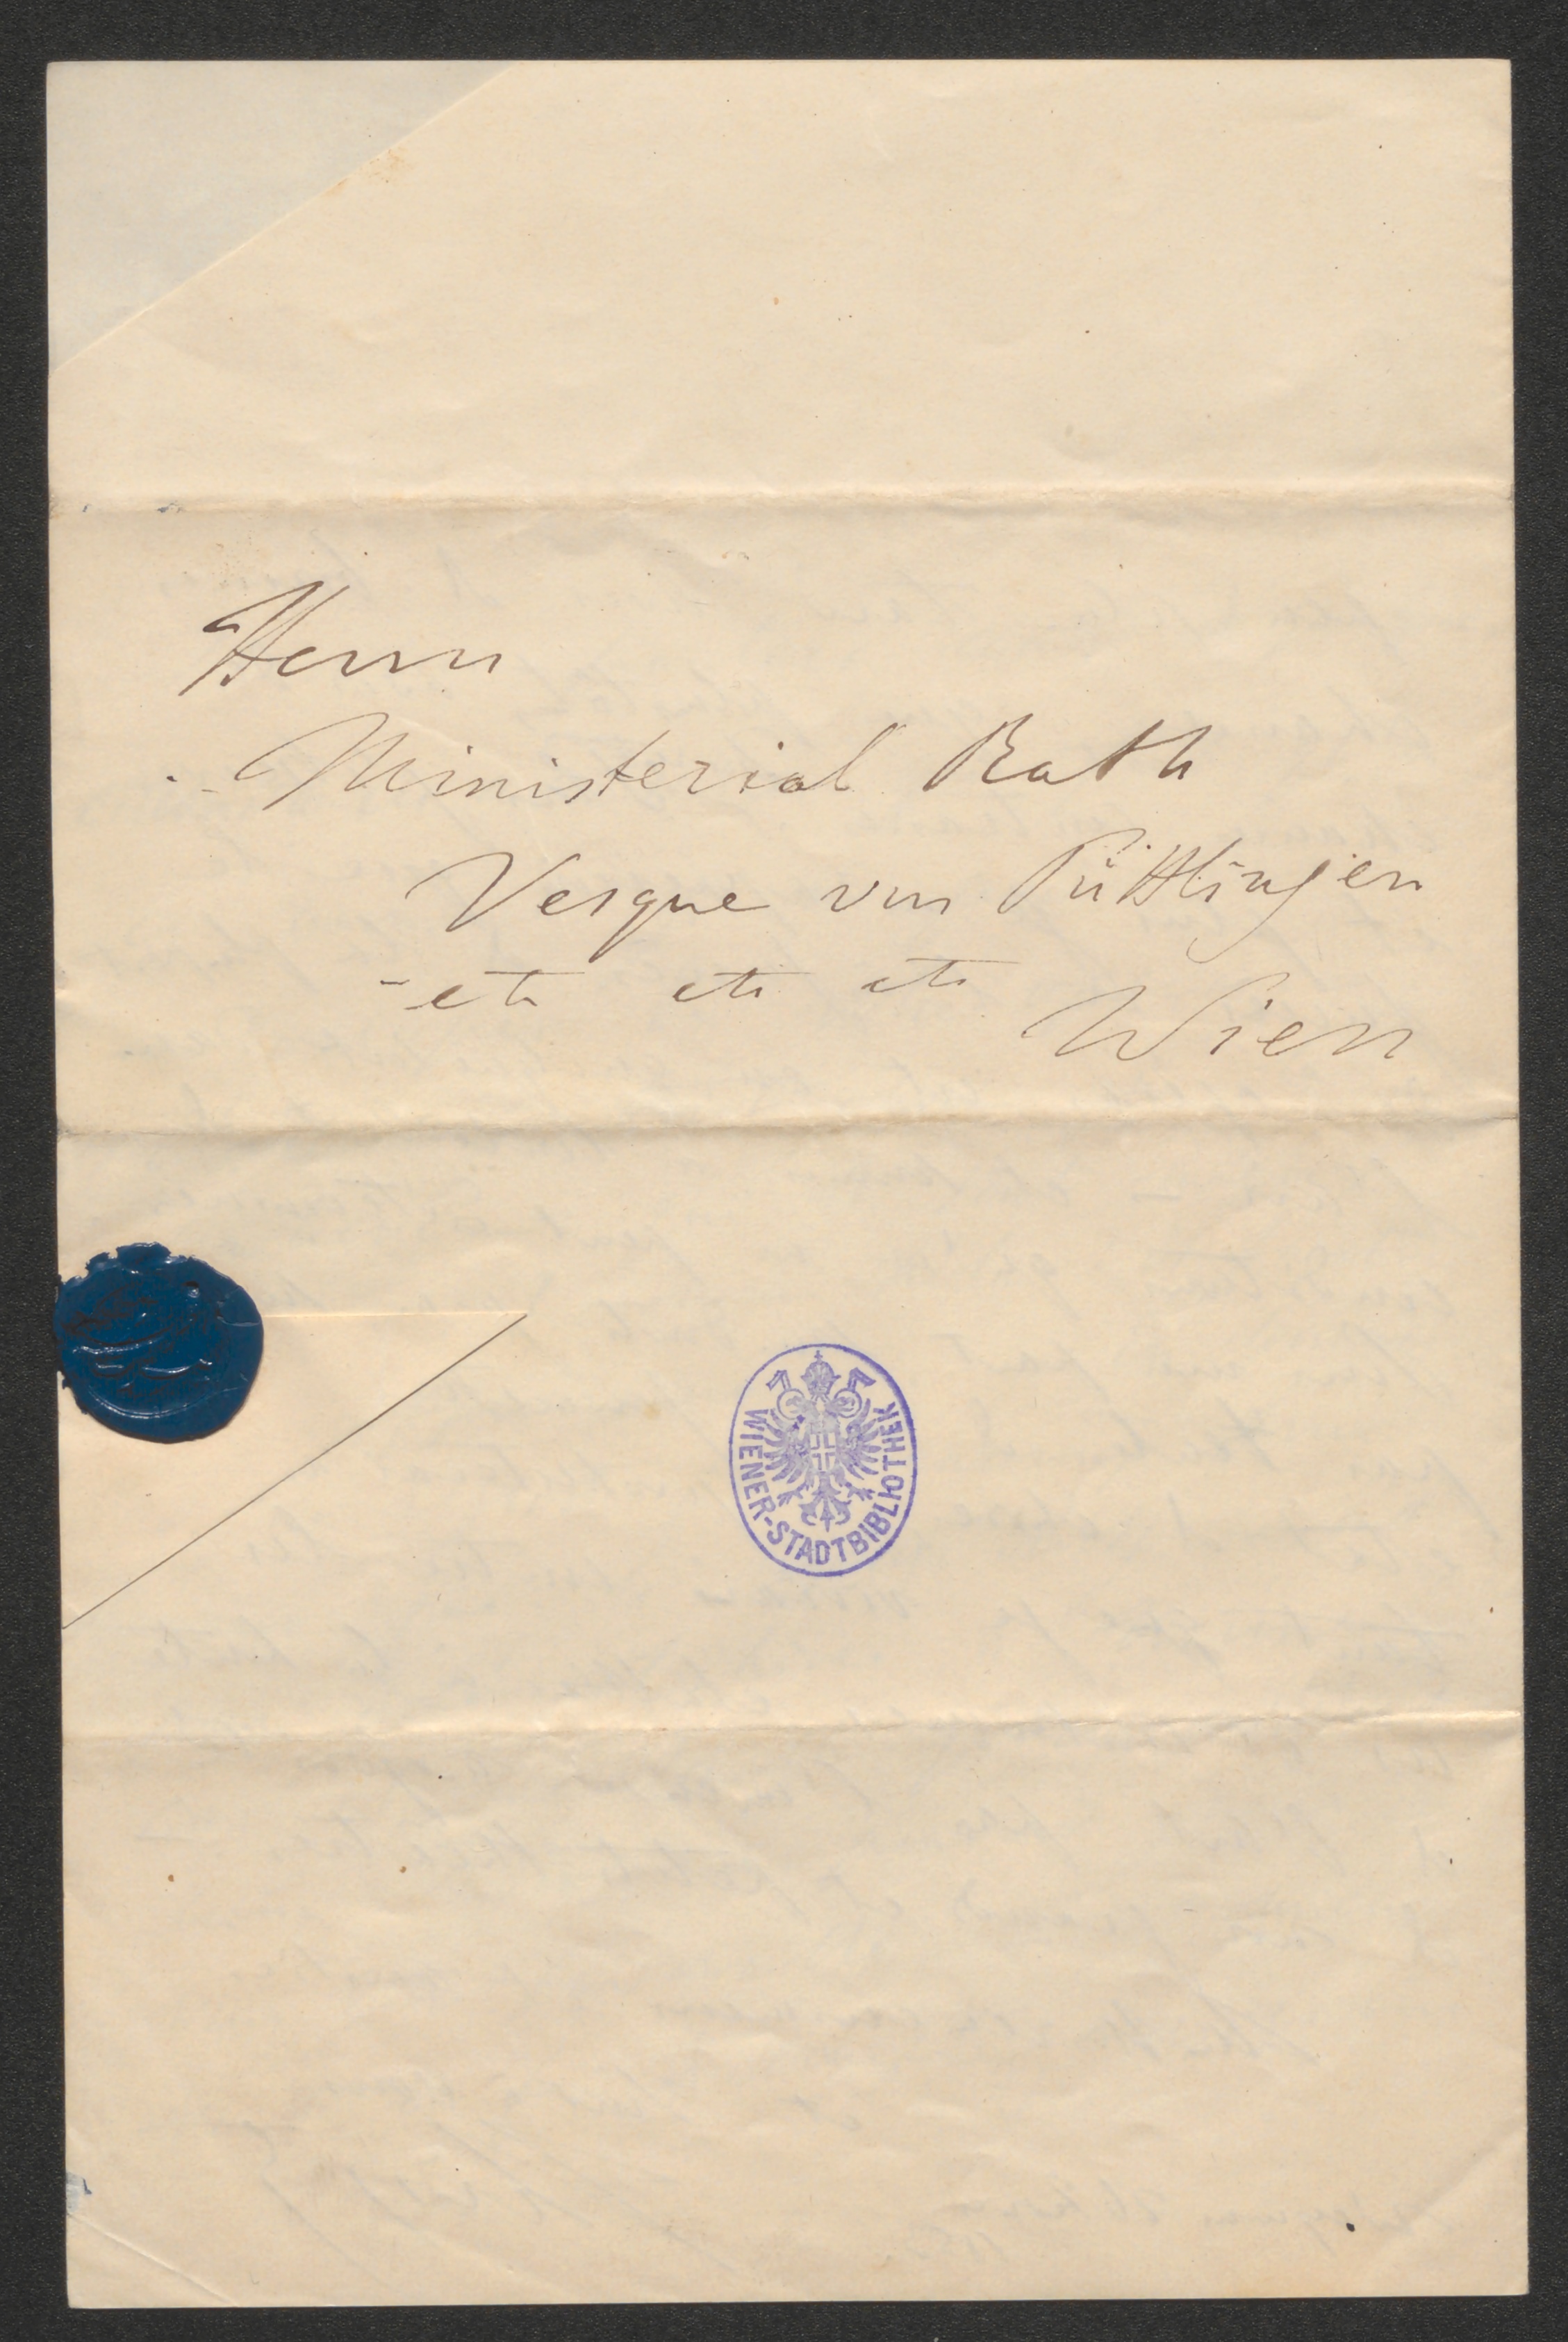 Herrn
Ministerial Rath
Vesque von Püttlingen
etc etc etc
Wien
WIENER-STADTBIBLIOTHEK